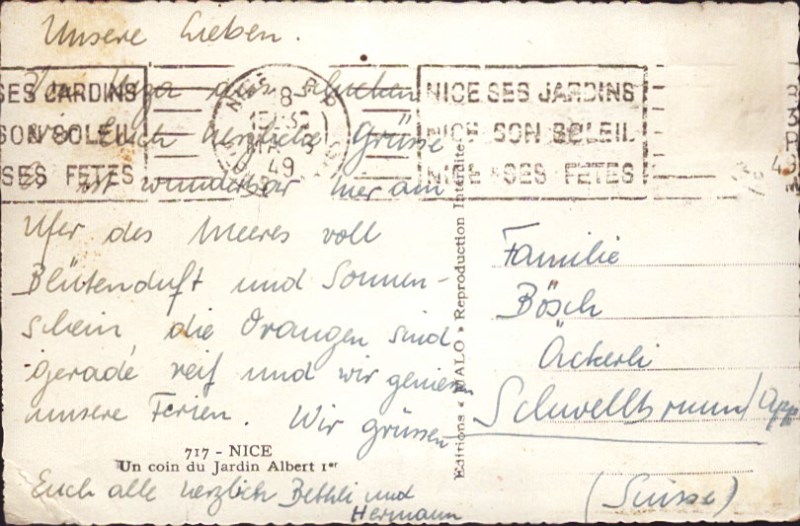 Unsere Lieben.
Von Nizza aus schicken
wir Euch herzliche Grüsse
Es ist wunderbar hier am
Ufer des Meeres voll
Blütenduft und Sonnen-
schein, die Orangen sind
gerade reif und wir geniessen
unsere Ferien. Wir grüssen
717 - NICE
Un coin du Jardin Albert 1er
Euch alle herzlich Bethli und
Hermann
SES JARDINS
SON SOLEIL
SES FETES
NICE
8
49
NICE SES JARDINS
NICE SON SOLEIL
NICE SES FETES
49
Editions « MALO » Reproduction Interdite
Familie
Bösch
Äckerli
Schwellbrunn/App
(Suisse)